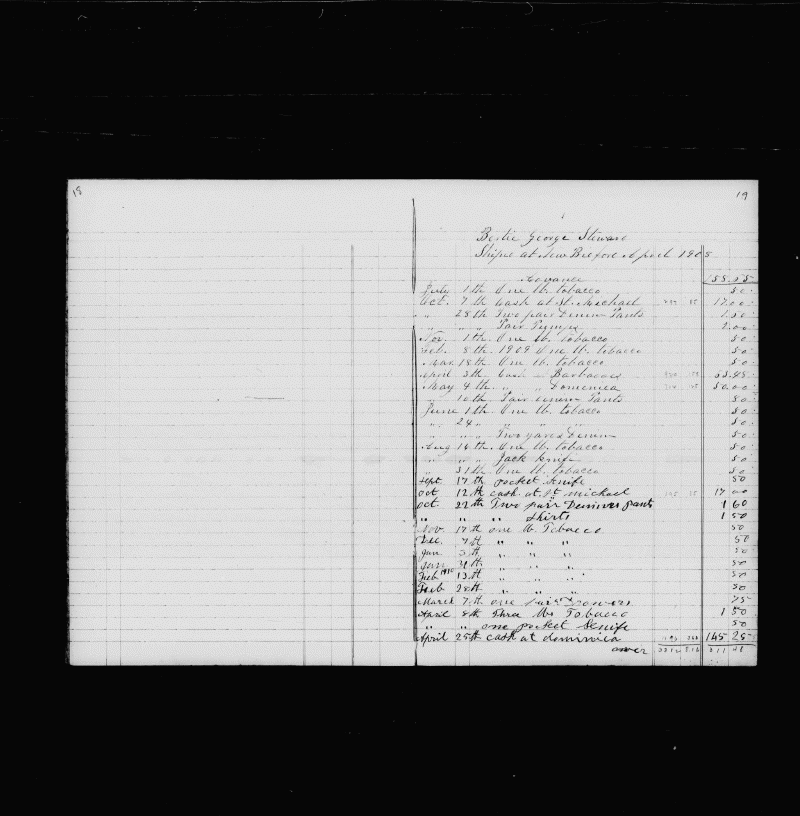 18
19
Bertie George Steward
Shiped at New Bedford April 1908
Advance
July 1th One lb. tobacco 50
Oct. 7th Cash at St. Michael 17.00
" 28th Two pair Denim Pants 1.50
" " " Pair Pumps 2.00
Nov. 1th One lb. tobacco 50
Feb. 8th 1909 One lb. tobacco 50
Mar. 18th One lb. tobacco 50
April 3th Cash - Barbadoes
May 4th " " Domenica 50.00
" 10th Pair Denim Pants 80
June 1th One lb. tobacco 50
" 24 " " " " 50
" " " Two yards Denim 50
Aug 14th One lb. tobacco 50
" " " Jack Knife 50
" 31th One lb. tobacco 50
Sept 17th pocket knife 50
Oct 12th cash at St michael 17 00
Oct. 22th Two pair Dumves pants 1 60
" " " Shirts 1 50
Nov. 17th one lb Tobacco 50
Dec. 7th " " " 50
Jan 3th " " " 50
Jan " " " 50
Feb 1910 13th " " " 50
Feb 28th " " " 50
March 7th one pair Drowers 75
April 8th Three lbs Tobacco 1 50
" " one pocket Knife 50
April 25th cash at dominica 145 25
over